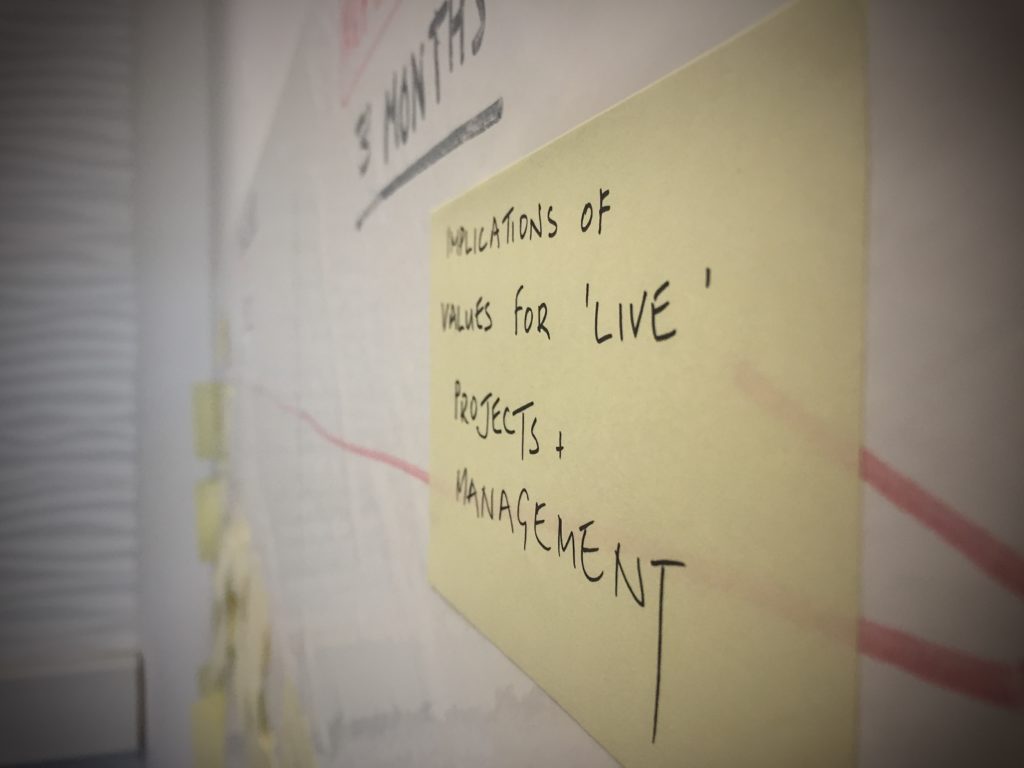 3 MONTHS
IMPLICATIONS OF
VALUES FOR 'LIVE'
PROJECTS +
MANAGEMENT